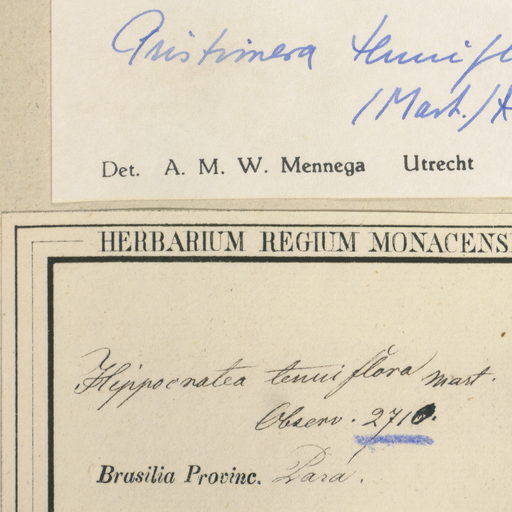 Pristimera tenuifl
(Mart.) A
Det. A. M. W. Mennega Utrecht
HERBARIUM REGIUM MONACENS
Hippocratea tenuiflora Mart.
Observ. 2710.
Brasilia Provinc. Pará.